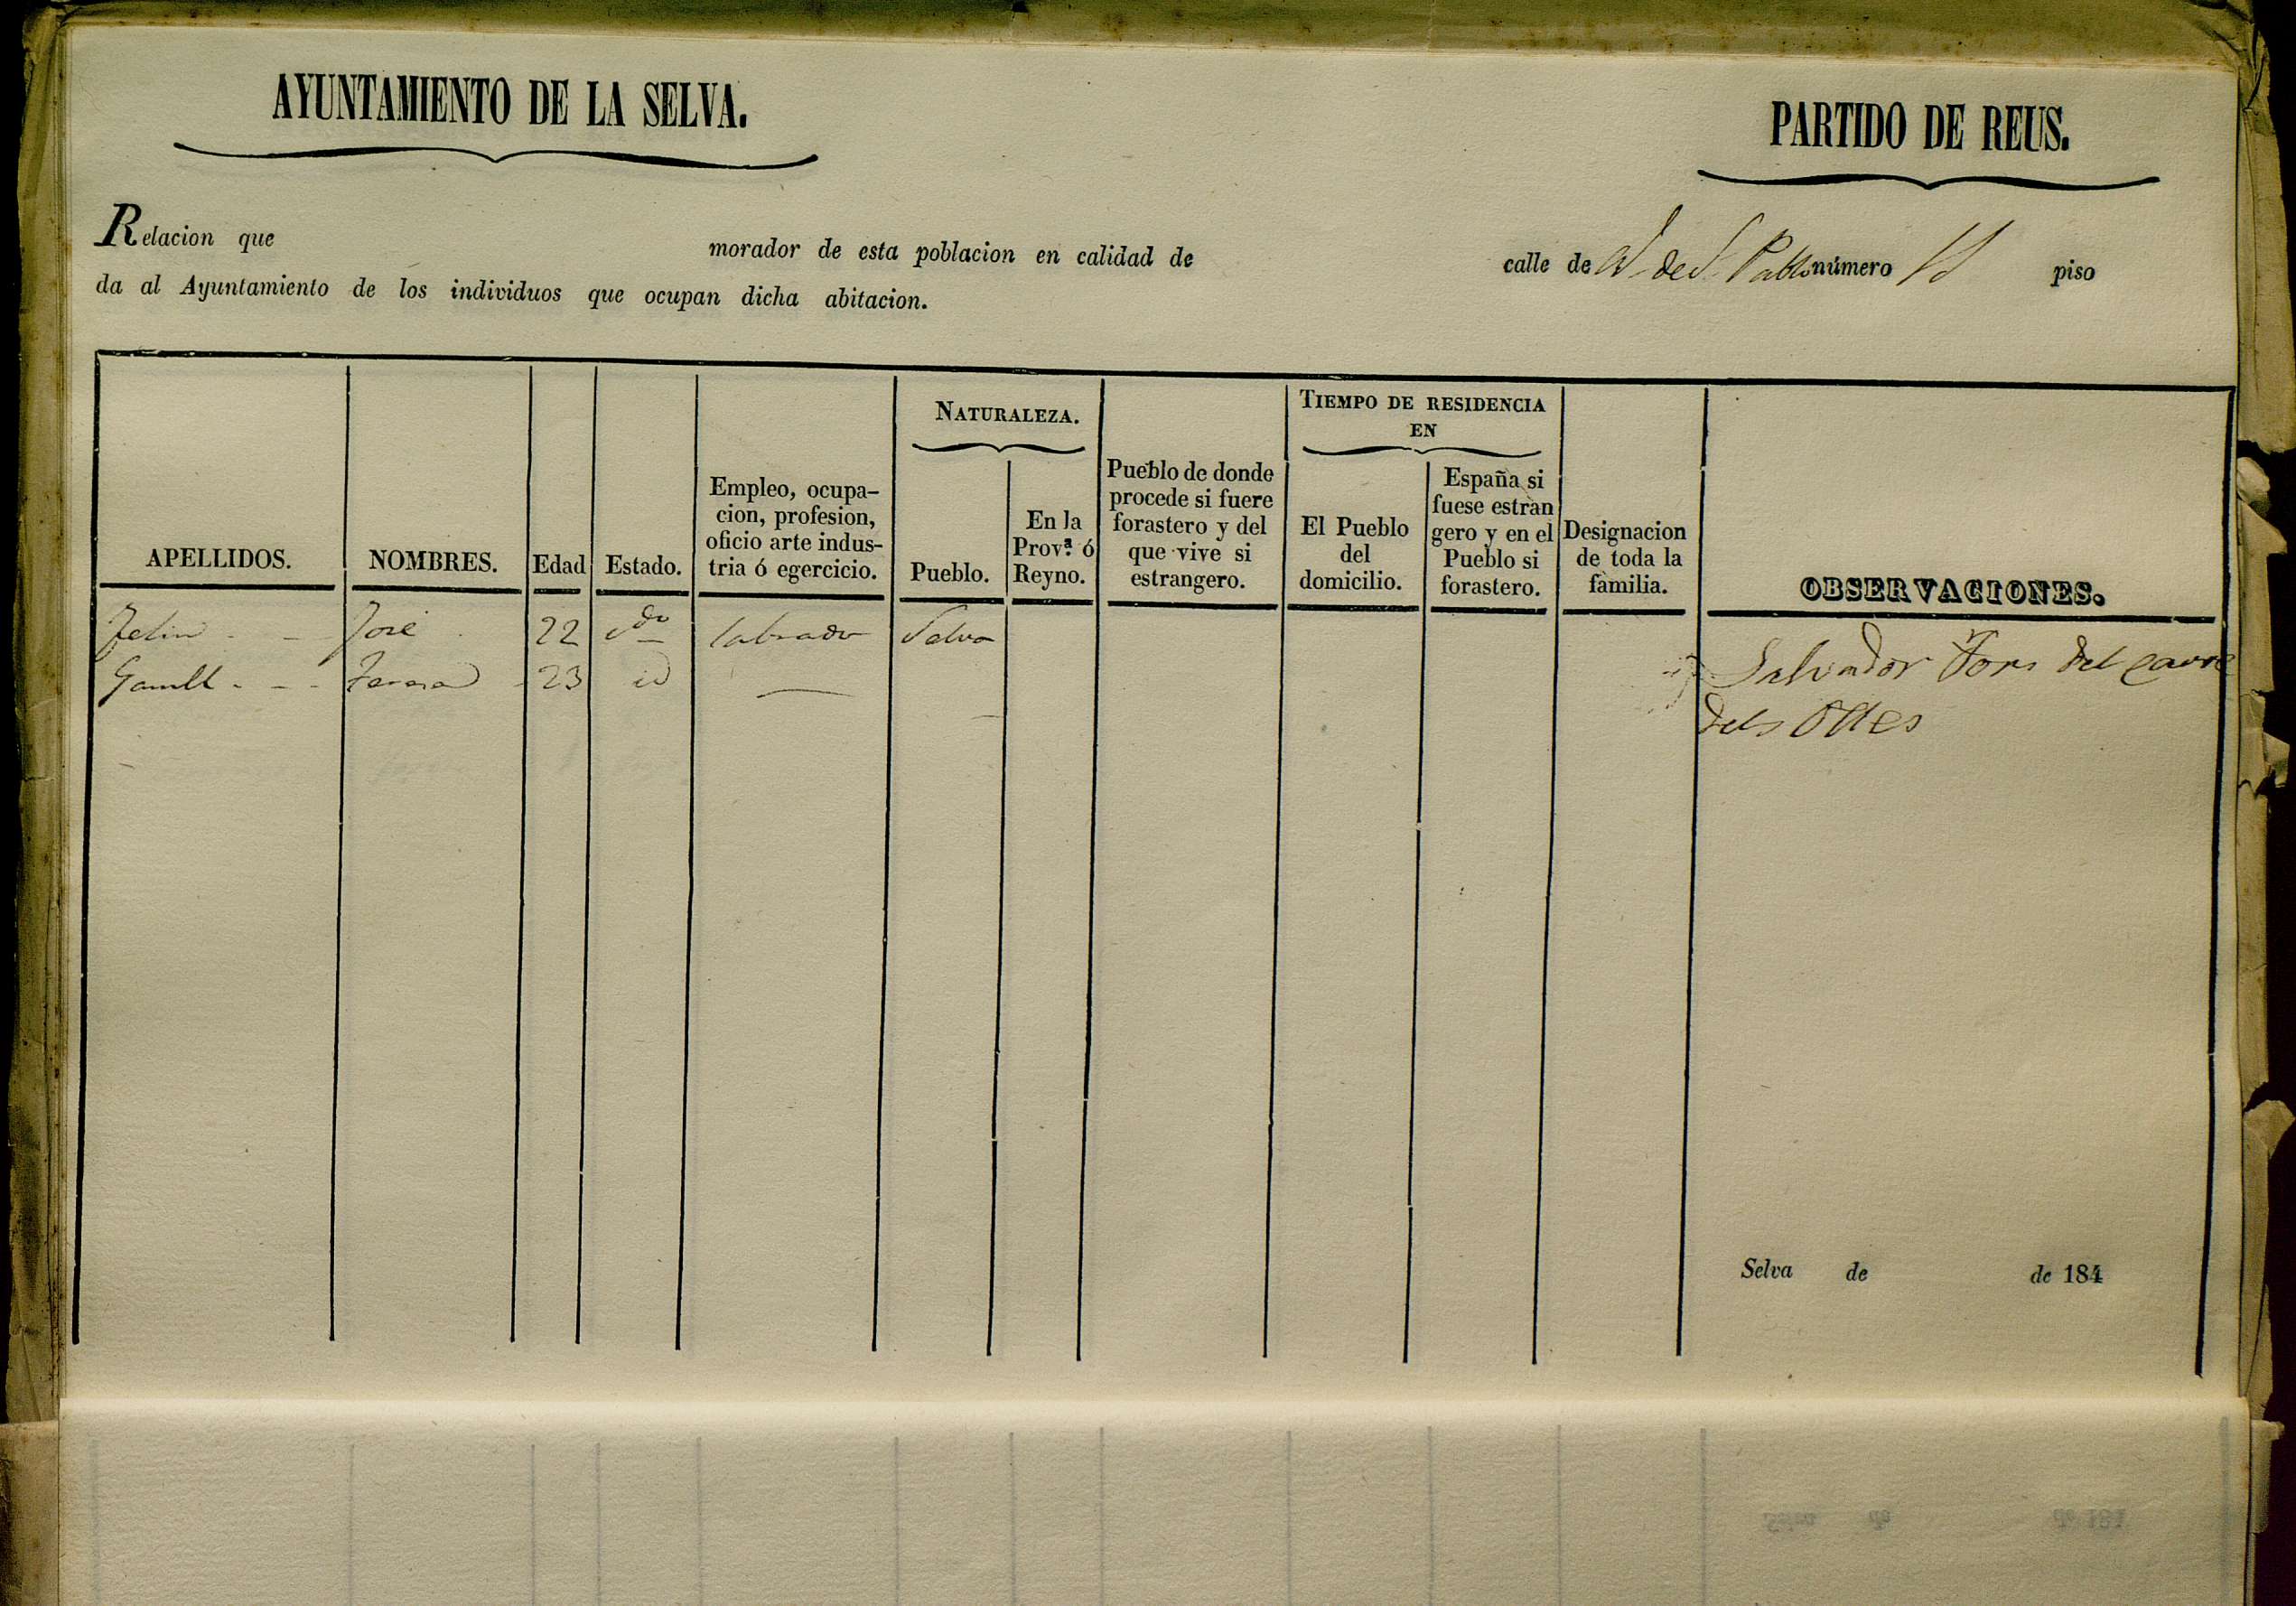 AYUNTAMIENTO DE LA SELVA.
PARTIDO DE REUS.
Relacion que morador de esta poblacion en calidad de calle de de S. Pablo número piso
da al Ayuntamiento de los individuos que ocupan dicha abitacion.
APELLIDOS.
NOMBRES.
Edad
Estado.
Empleo, ocupa-
cion, profesion,
oficio arte indus-
tria ó egercicio.
NATURALEZA.
Pueblo.
En la
Provª. ó
Reyno.
Pueblo de donde
procede si fuere
forastero y del
que vive si
estrangero.
TIEMPO DE RESIDENCIA
EN
El Pueblo
del
domicilio.
España si
fuese estran
gero y en el
Pueblo si
forastero.
Designacion
de toda la
familia.
OBSERVACIONES.
Feliu José 22 labrador Selva
Teresa 23 id
Salvador Fors del carre
dels
Selva de de 184